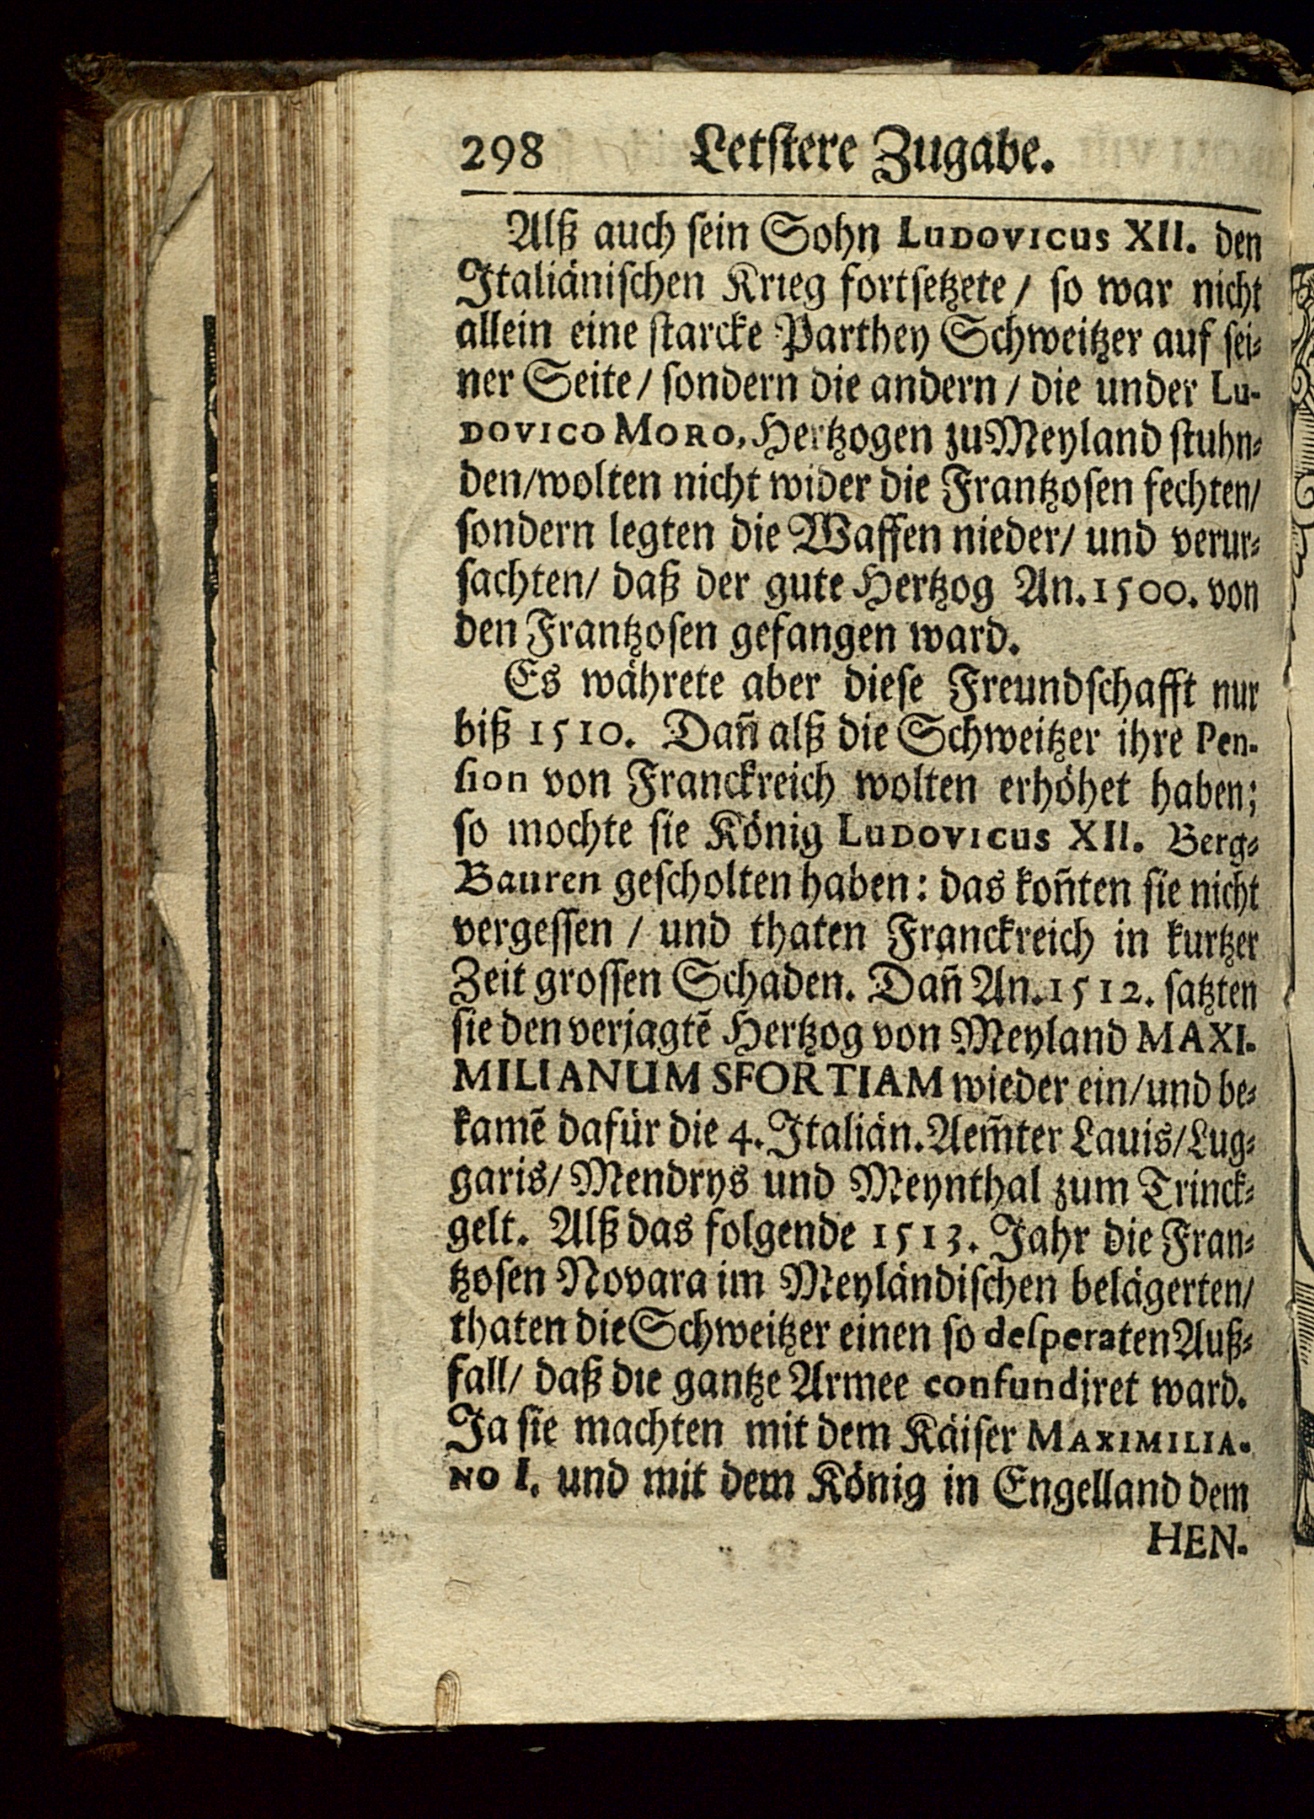 298 Letstere Zugabe.
Alß auch sein Sohn LUDOVICUS XII. den
Italiänischen Krieg fortsetzete / so war nicht
allein eine starcke Parthey Schweitzer auf sei-
ner Seite / sondern die andern / die under LU-
DOVICO MORO, Hertzogen zu Meyland stuhn-
den/wolten nicht wider die Frantzosen fechten/
sondern legten die Waffen nieder/ und verur-
sachten/ daß der gute Hertzog An. 1500. von
den Frantzosen gefangen ward.
Es währete aber diese Freundschafft nur
biß 1510. Dañ alß die Schweitzer ihre Pen-
sion von Franckreich wolten erhöhet haben;
so mochte sie König LUDOVICUS XII. Berg-
Bauren gescholten haben: das koñten sie nicht
vergessen / und thaten Franckreich in kurtzer
Zeit grossen Schaden. Dañ An. 1512. satzten
sie den verjagtẽ Hertzog von Meyland MAXI-
MILIANUM SFORTIAM wieder ein/und be-
kamẽ dafür die 4. Italiän. Aem̃ter Lauis/Lug-
garis/ Mendrys und Meynthal zum Trinck-
gelt. Alß das folgende 1513. Jahr die Fran-
tzosen Novara im Meyländischen belägerten/
thaten die Schweitzer einen so desperaten Auß-
fall/ daß die gantze Armee confundiret ward.
Ja sie machten mit dem Käiser MAXIMILIA-
NO I. und mit dem König in Engelland dem
HEN-